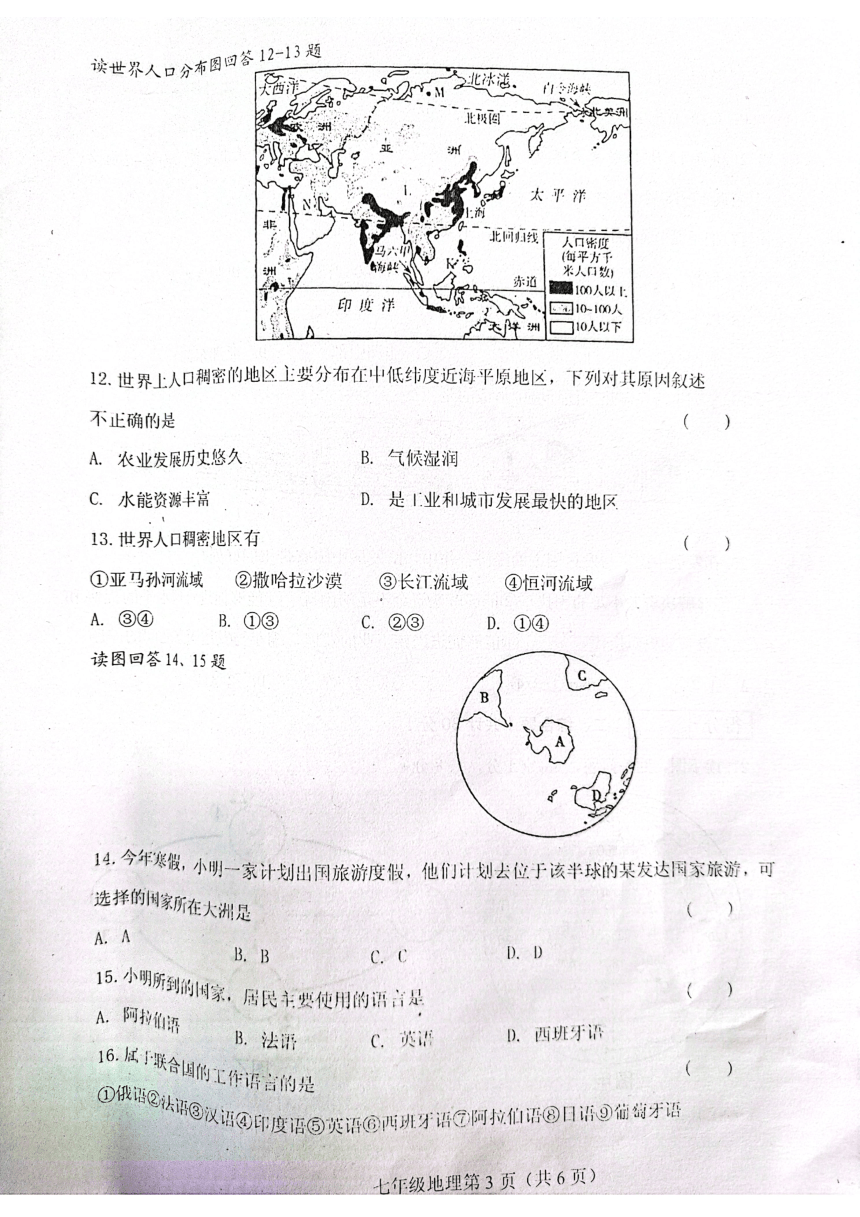 读世界人口分布图回答12-13题
大西洋
北冰洋
白令海峡
M
北极圈
北美洲
欧 洲
亚 洲
太平洋
N
L
上海
北回归线
非
洲
马六甲
海峡
K
赤道
印度洋
大洋洲
人口密度
(每平方千
米人口数)
100人以上
10~100人
10人以下
12.世界上人口稠密的地区主要分布在中低纬度近海平原地区，下列对其原因叙述
不正确的是 ( )
A. 农业发展历史悠久 B. 气候湿润
C. 水能资源丰富 D. 是工业和城市发展最快的地区
13.世界人口稠密地区有 ( )
①亚马孙河流域 ②撒哈拉沙漠 ③长江流域 ④恒河流域
A. ③④ B. ①③ C. ②③ D. ①④
读图回答14、15题
C
B
A
D
14.今年寒假，小明一家计划出国旅游度假，他们计划去位于该半球的某发达国家旅游，可
选择的国家所在大洲是 ( )
A. A B. B C. C D. D
15.小明所到的国家，居民主要使用的语言是 ( )
A. 阿拉伯语 B. 法语 C. 英语 D. 西班牙语
16.属于联合国的工作语言的是 ( )
①俄语②法语③汉语④印度语⑤英语⑥西班牙语⑦阿拉伯语⑧日语⑨葡萄牙语
七年级地理第3页（共6页）